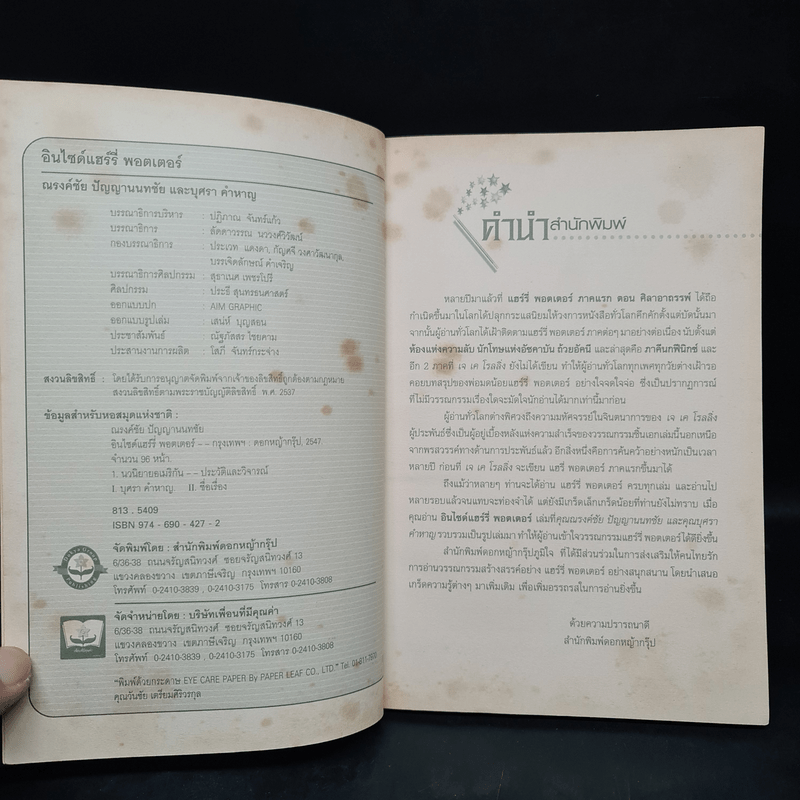 อินไซด์แฮร์รี่ พอตเตอร์
ณรงค์ชัย ปัญญานนทชัย และบุศรา คำหาญ
บรรณาธิการบริหาร : ปฏิภาณ จันทร์แก้ว
บรรณาธิการ : ลัดดาวรรณ นววงศ์วิวัฒน์
กองบรรณาธิการ : ประเวท แดงดา, กัญศจี วงศาวัฒนากุล,
บรรเจิดลักษณ์ คำเจริญ
บรรณาธิการศิลปกรรม : สุธาเนศ เพชรโปรี
ศิลปกรรม : ประธี สุนทรธนศาสตร์
ออกแบบปก : AIM GRAPHIC
ออกแบบรูปเล่ม : เสน่ห์ บุญสอน
ประชาสัมพันธ์ : ณัฐภัสสร ไชยคาม
ประสานงานการผลิต : โสภี จันทร์กระจ่าง
สงวนลิขสิทธิ์ : โดยได้รับการอนุญาตจัดพิมพ์จากเจ้าของลิขสิทธิ์ถูกต้องตามกฎหมาย
สงวนลิขสิทธิ์ตามพระราชบัญญัติลิขสิทธิ์ พ.ศ. 2537
ข้อมูลสำหรับหอสมุดแห่งชาติ :
ณรงค์ชัย ปัญญานนทชัย
อินไซด์แฮร์รี่ พอตเตอร์ -- กรุงเทพฯ : ดอกหญ้ากรุ๊ป, 2547.
จำนวน 96 หน้า.
1. นวนิยายอเมริกัน -- ประวัติและวิจารณ์
I. บุศรา คำหาญ. II. ชื่อเรื่อง
813 . 5409
ISBN 974 - 690 - 427 - 2
จัดพิมพ์โดย : สำนักพิมพ์ดอกหญ้ากรุ๊ป
6/36-38 ถนนจรัญสนิทวงศ์ ซอยจรัญสนิทวงศ์ 13
แขวงคลองขวาง เขตภาษีเจริญ กรุงเทพฯ 10160
โทรศัพท์ 0-2410-3839, 0-2410-3175 โทรสาร 0-2410-3808
จัดจำหน่ายโดย : บริษัทเพื่อนที่มีคุณค่า
6/36-38 ถนนจรัญสนิทวงศ์ ซอยจรัญสนิทวงศ์ 13
แขวงคลองขวาง เขตภาษีเจริญ กรุงเทพฯ 10160
โทรศัพท์ 0-2410-3839, 0-2410-3175 โทรสาร 0-2410-3808
"พิมพ์ด้วยกระดาษ EYE CARE PAPER By PAPER LEAF CO., LTD." Tel.
คุณวันชัย เตรียมศิริวรกุล
คำนำสำนักพิมพ์
หลายปีมาแล้วที่ แฮร์รี่ พอตเตอร์ ภาคแรก ตอน ศิลาอาถรรพ์ ได้ถือ
กำเนิดขึ้นมาในโลกได้ปลุกกระแสนิยมให้วงการหนังสือทั่วโลกคึกคักตั้งแต่บัดนั้นมา
จากนั้นผู้อ่านทั่วโลกได้เฝ้าติดตามแฮร์รี่ พอตเตอร์ ภาคต่อๆ มาอย่างต่อเนื่อง นับตั้งแต่
ห้องแห่งความลับ นักโทษแห่งอัซคาบัน ถ้วยอัคนี และล่าสุดคือ ภาคีนกฟีนิกซ์ และ
อีก 2 ภาคที่ เจ เค โรลลิ่ง ยังไม่ได้เขียน ทำให้ผู้อ่านทั่วโลกทุกเพศทุกวัยต่างเฝ้ารอ
คอยบทสรุปของพ่อมดน้อยแฮร์รี่ พอตเตอร์ อย่างใจจดใจจ่อ ซึ่งเป็นปรากฏการณ์
ที่ไม่มีวรรณกรรมเรื่องใดจะมัดใจนักอ่านได้มากเท่านี้มาก่อน
ผู้อ่านทั่วโลกต่างพิศวงถึงความมหัศจรรย์ในจินตนาการของ เจ เค โรลลิ่ง
ผู้ประพันธ์ซึ่งเป็นผู้อยู่เบื้องหลังแห่งความสำเร็จของวรรณกรรมชิ้นเอกเล่มนี้นอกเหนือ
จากพรสวรรค์ทางด้านการประพันธ์แล้ว อีกสิ่งหนึ่งคือการค้นคว้าอย่างหนักเป็นเวลา
หลายปี ก่อนที่ เจ เค โรลลิ่ง จะเขียน แฮรี่ พอตเตอร์ ภาคแรกขึ้นมาได้
ถึงแม้ว่าหลายๆ ท่านจะได้อ่าน แฮร์รี่ พอตเตอร์ ครบทุกเล่ม และอ่านไป
หลายรอบแล้วจนแทบจะท่องจำได้ แต่ยังมีเกร็ดเล็กเกร็ดน้อยที่ท่านยังไม่ทราบ เมื่อ
คุณอ่าน อินไซด์แฮร์รี่ พอตเตอร์ เล่มที่คุณณรงค์ชัย ปัญญานนทชัย และคุณบุศรา
คำหาญ รวบรวมเป็นรูปเล่มมา ทำให้ผู้อ่านเข้าใจวรรณกรรมแฮร์รี่ พอตเตอร์ได้ดียิ่งขึ้น
สำนักพิมพ์ดอกหญ้ากรุ๊ปภูมิใจ ที่ได้มีส่วนร่วมในการส่งเสริมให้คนไทยรัก
การอ่านวรรณกรรมสร้างสรรค์อย่าง แฮร์รี่ พอตเตอร์ อย่างสนุกสนาน โดยนำเสนอ
เกร็ดความรู้ต่างๆ มาเพิ่มเติม เพื่อเพิ่มอรรถรสในการอ่านยิ่งขึ้น
ด้วยความปรารถนาดี
สำนักพิมพ์ดอกหญ้ากรุ๊ป